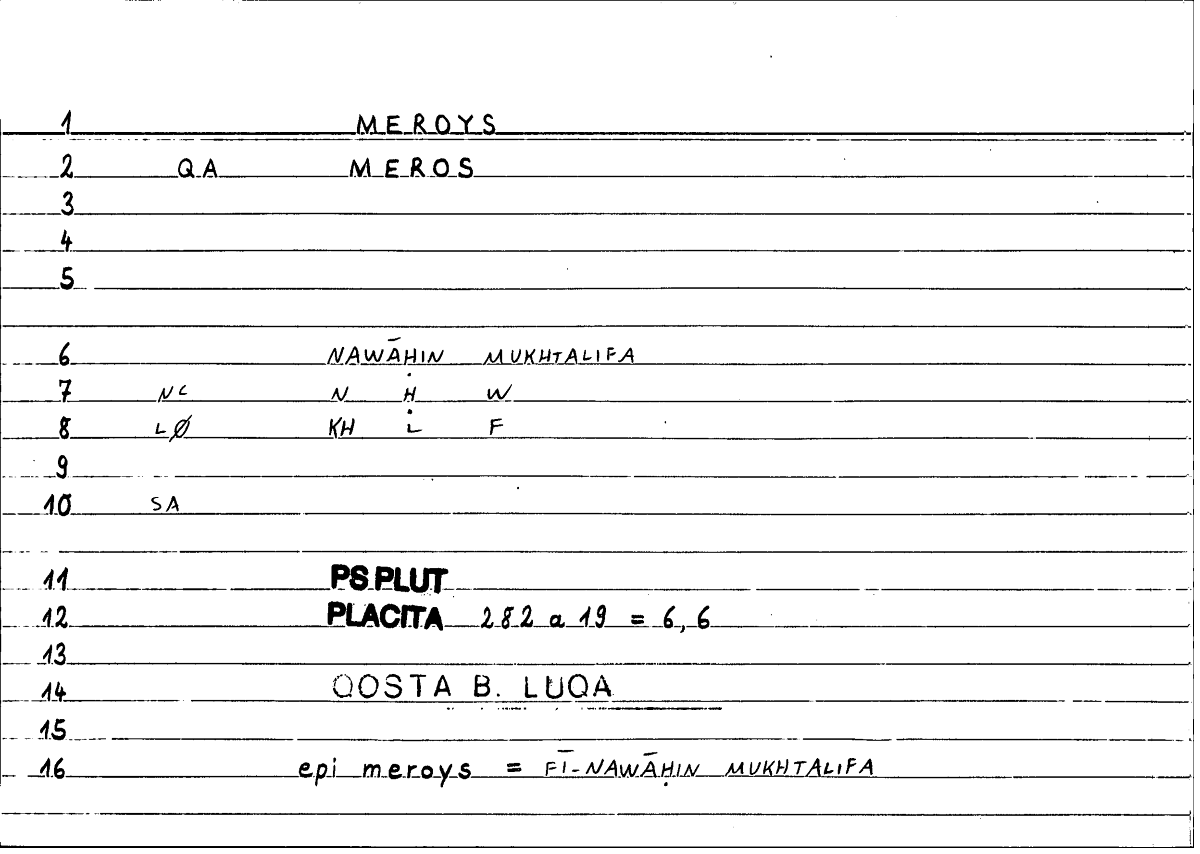 1 MEROYS
2 QA MEROS
3
4
5
6 NAWĀḤIN MUKHTALIFA
7 NC N Ḥ W
8 LØ KH L F
9
10 SA
11 PS PLUT
12 PLACITA 282 a 19 = 6,6
13
14 QOSTA B. LUQA
15
16 epi meroys = FĪ-NAWĀḤIN MUKHTALIFA